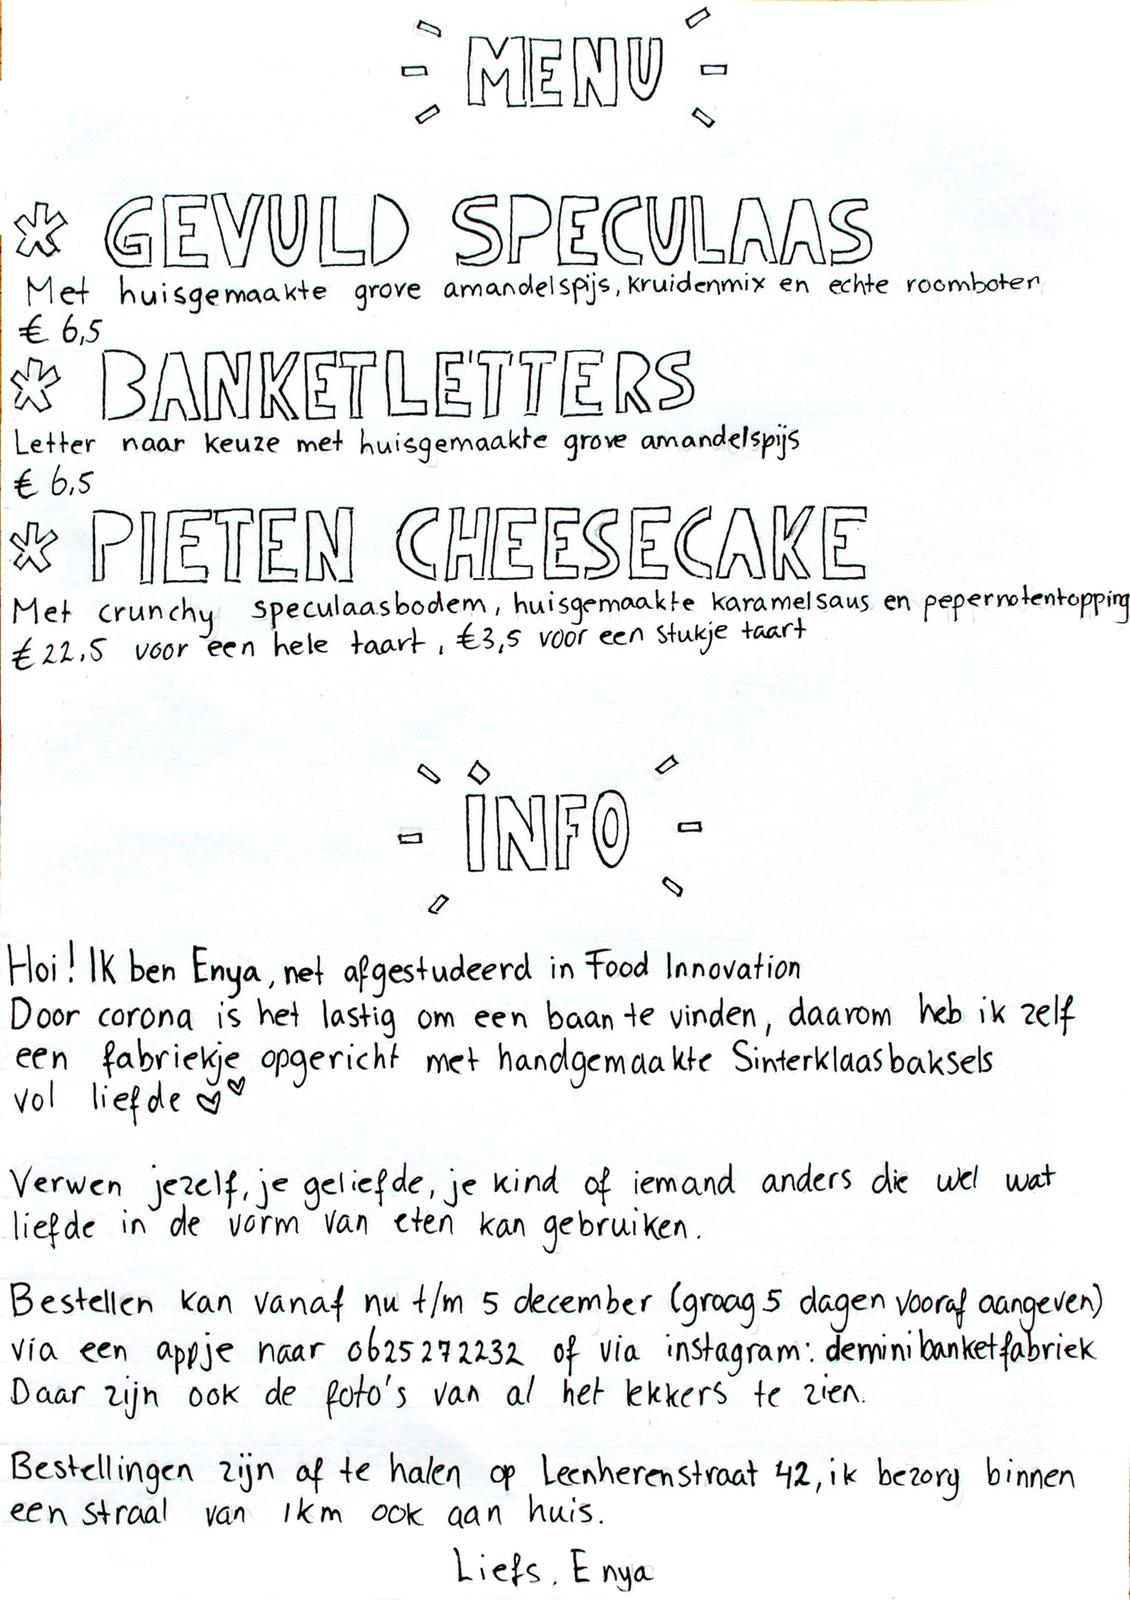 MENU
* GEVULD SPECULAAS
Met huisgemaakte grove amandelspijs, kruidenmix en echte roomboter
€ 6,5
* BANKETLETTERS
Letter naar keuze met huisgemaakte grove amandelspijs
€ 6,5
* PIETEN CHEESECAKE
Met crunchy speculaasbodem, huisgemaakte karamelsaus en pepernotentopping
€ 22,5 voor een hele taart, €3,5 voor een stukje taart
INFO
Hoi! Ik ben Enya, net afgestudeerd in Food Innovation
Door corona is het lastig om een baan te vinden, daarom heb ik zelf
een fabriekje opgericht met handgemaakte Sinterklaasbaksels
vol liefde ♡♡
Verwen jezelf, je geliefde, je kind of iemand anders die wel wat
liefde in de vorm van eten kan gebruiken.
Bestellen kan vanaf nu t/m 5 december (graag 5 dagen vooraf aangeven)
via een appje naar 0625272232 of via instagram: deminibanketfabriek
Daar zijn ook de foto's van al het lekkers te zien.
Bestellingen zijn af te halen op Leenherenstraat 42, ik bezorg binnen
een straal van 1km ook aan huis.
Liefs, Enya